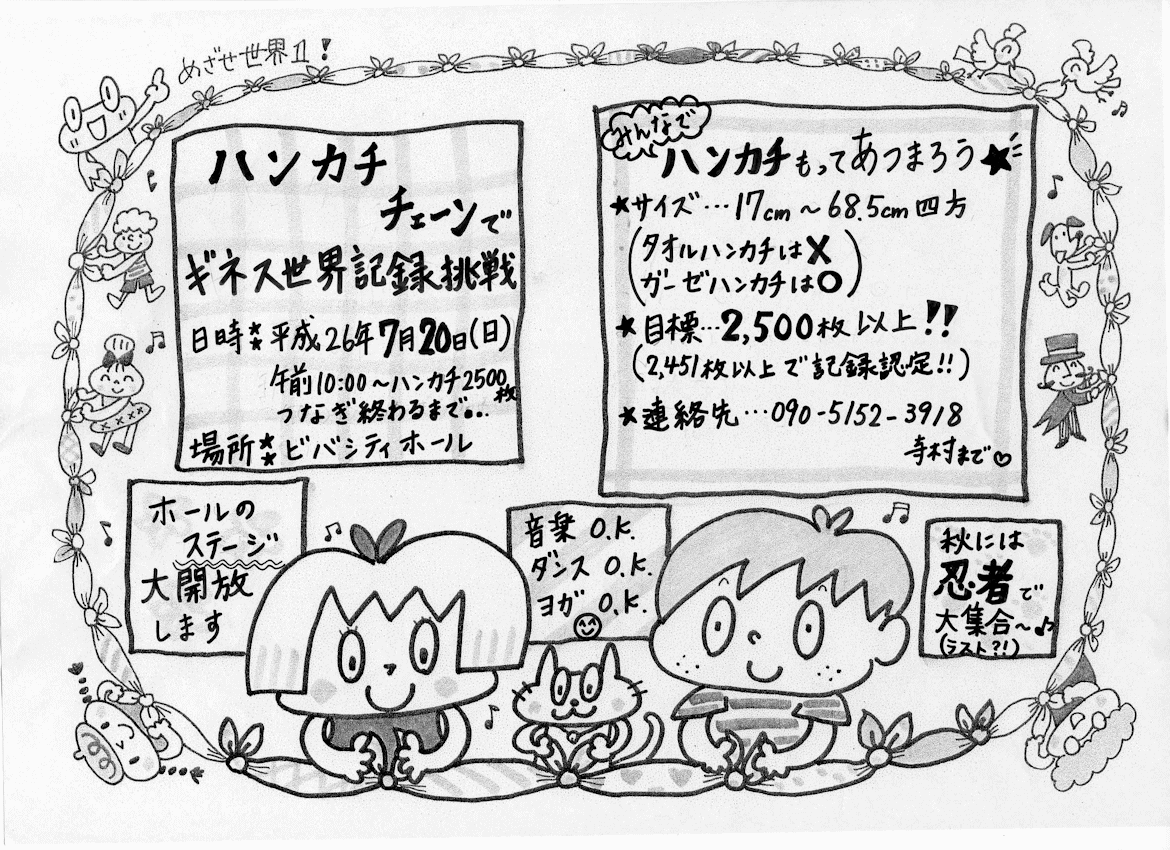 めざせ世界1!
ハンカチ
チェーンで
ギネス世界記録挑戦
日時★平成26年7月20日(日)
午前10:00〜ハンカチ2500枚
つなぎ終わるまで...
場所★ビバシティホール
みんなで
ハンカチもってあつまろう★
★サイズ…17cm〜68.5cm四方
(タオルハンカチは×
ガーゼハンカチは○)
★目標…2,500枚以上!!
(2,451枚以上で記録認定!!)
★連絡先…090-5152-3918
寺村まで♡
ホールの
ステージ
大開放
します
音楽 O.K.
ダンス O.K.
ヨガ O.K.
秋には
忍者で
大集合〜♪
(ラスト?!)